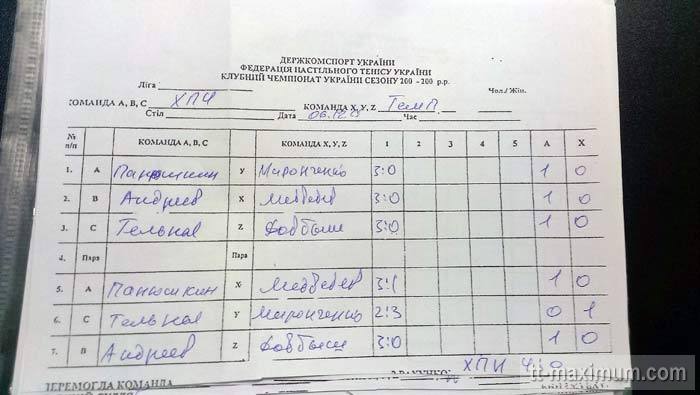 ДЕРЖКОМСПОРТ УКРАЇНИ
ФЕДЕРАЦІЯ НАСТІЛЬНОГО ТЕНІСУ УКРАЇНИ
КЛУБНИЙ ЧЕМПІОНАТ УКРАЇНИ СЕЗОНУ 200 -200 р.р.
Ліга Чол./ Жін.
КОМАНДА А, В, С ХПИ КОМАНДА X, Y, Z Темп
Стіл Дата 06.12.15 Час
№ п/п КОМАНДА А, В, С КОМАНДА X, Y, Z 1 2 3 4 5 А X
1. А Панюшкин Y Миронченко 3:0 1 0
2. В Андреев X Медведев 3:0 1 0
3. С Тельной Z Довбыш 3:0 1 0
4. Пара Пара
5. А Панюшкин X Медведев 3:1 1 0
6. С Тельной Y Миронченко 2:3 0 1
7. В Андреев Z Довбыш 3:0 1 0
ПЕРЕМОГЛА КОМАНДА З РАХУНКОМ: ХПИ 4:0
tt-maximum.com